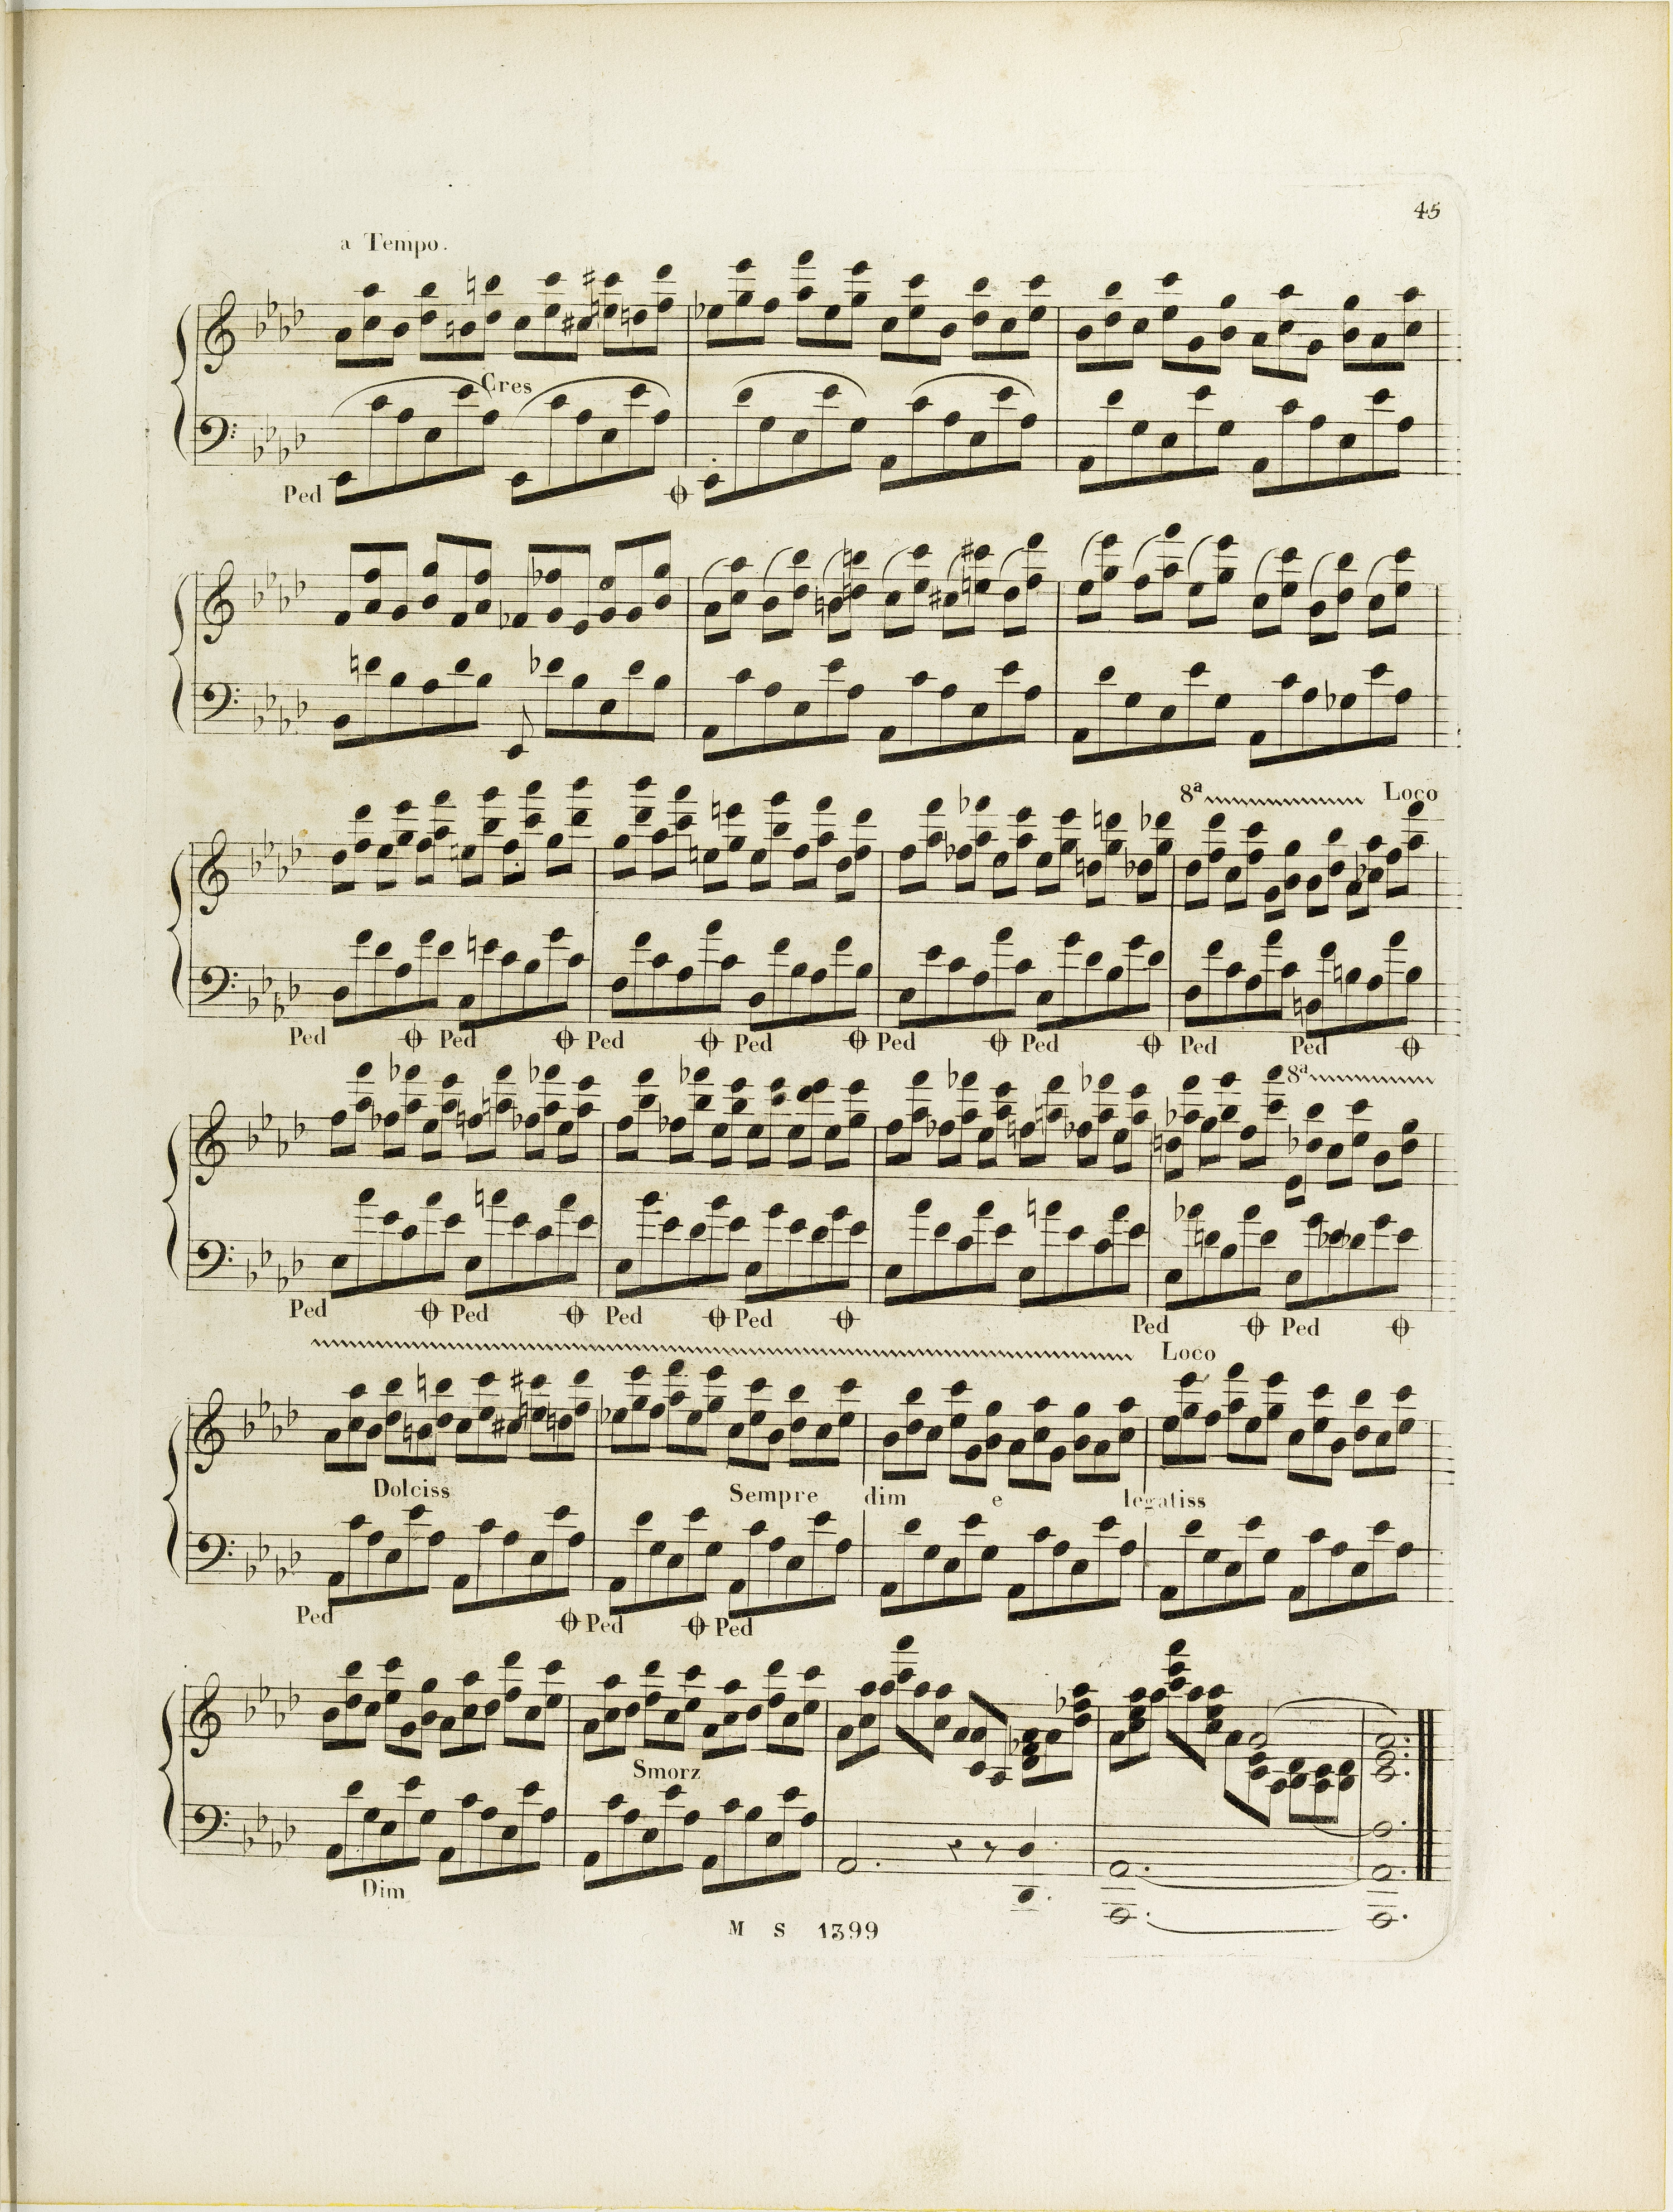 45
a Tempo.
Cres
Ped
8ª Loco
Ped Ped Ped Ped Ped Ped Ped Ped
8ª
Ped Ped Ped Ped Ped Ped
Loco
Dolciss Sempre dim e legatiss
Ped Ped Ped
Smorz
Dim
M S 1399